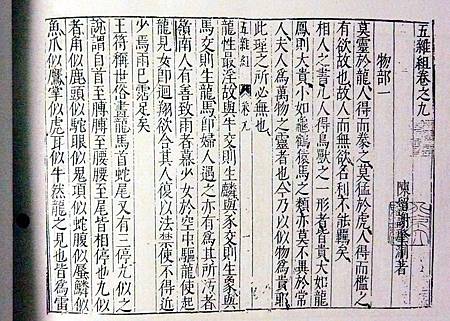 五雜組卷之九
陳留謝肇淛著
物部一
莫靈於龍人得而豢之莫猛於虎人得而檻之
有欲故也故人而無欲名利不能羈矣
相人之書凡人得鳥獸之一形者皆貴大如龍
鳳則大貴小如龜鶴猿馬之類亦莫不異於常
人夫人為萬物之靈者也今乃以似物為貴耶
此理之所必無也
五雜組 卷九
龍性最淫故與牛交則生麟與豕交則生象與
馬交則生龍馬即婦人遇之亦有為其所污者
嶺南人有善致雨者幕少女於空中驅龍使起
龍見女即迴翔欲合其人復以法禁使不得近
少焉雨已霑足矣
王符稱世俗畫龍馬首蛇尾又有三停九似之
說謂自首至膊膊至腰腰至尾皆相停也九似
者角似鹿頭似駝眼似鬼項似蛇腹似蜃鱗似
魚爪似鷹掌似虎耳似牛然龍之見也皆為雷